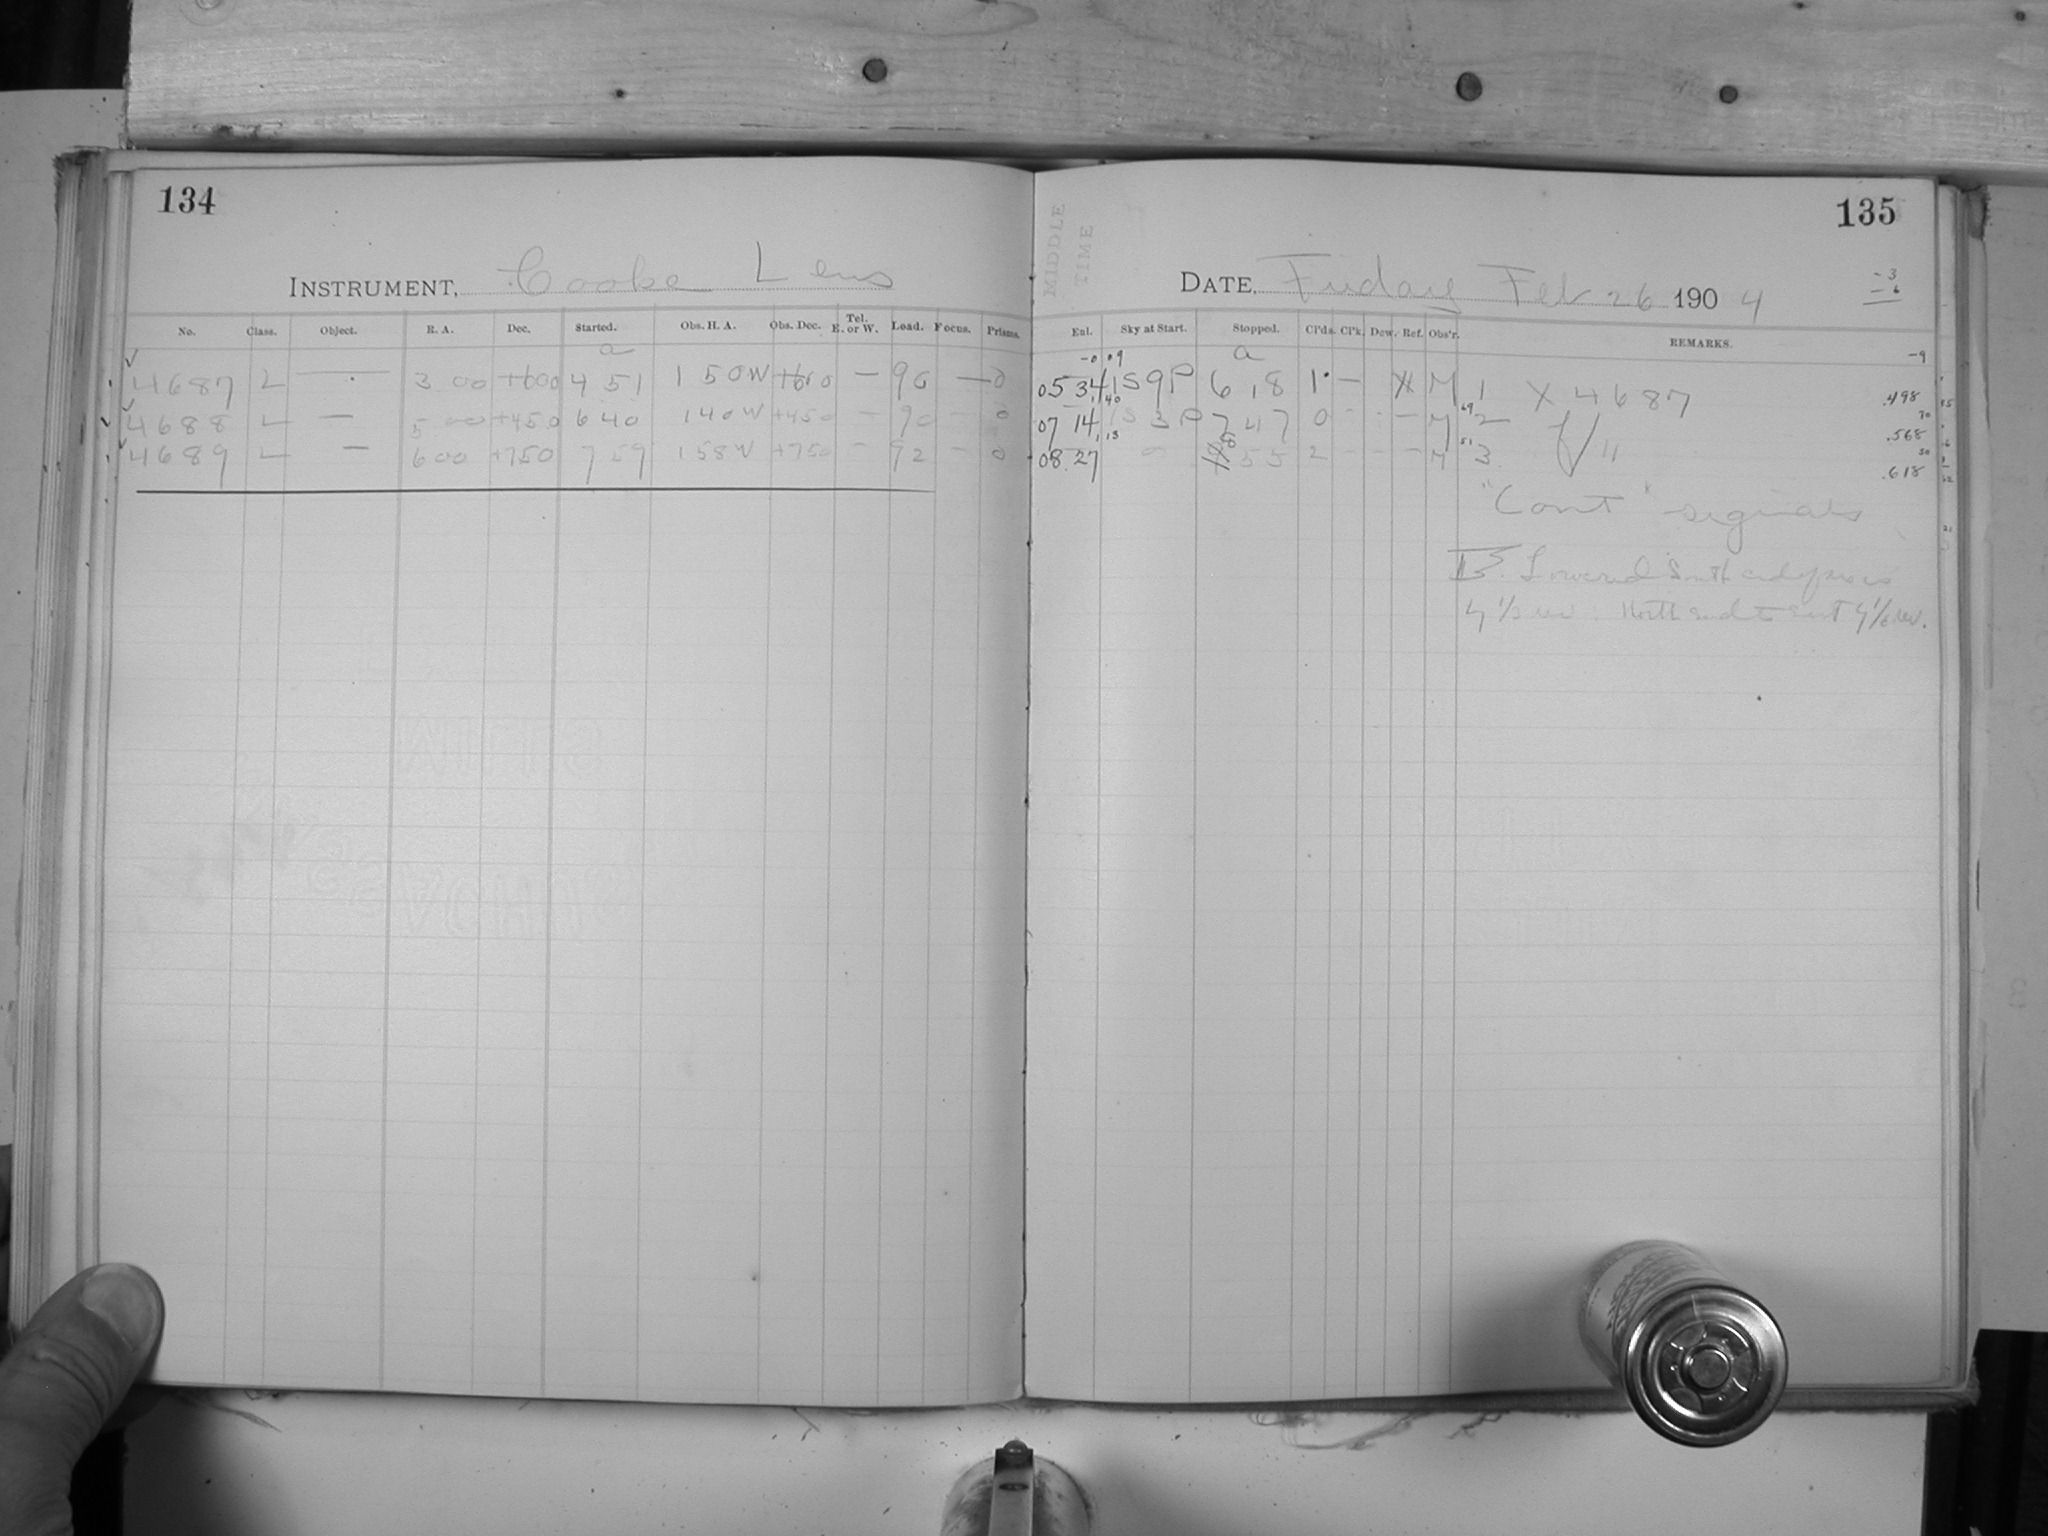 134
INSTRUMENT, Cooke Lens
No. Class. Object. R. A. Dec. Started. Obs. H. A. Obs. Dec. Tel. E. or W. Load. Focus. Prisms.
a
4687 L — 3 00 +600 4 51 1 50W +600 — 90 — 0
4688 L — 5 00 +450 6 40 1 40W +450 — 90 0
4689 L — 6 00 +750 7 59 1 58W +750 92 - 0
135
MIDDLE
TIME
DATE, Friday Feb 26 1904
-3
-6
Enl. Sky at Start. Stopped. Cl'ds. Cl'k. Dew. Ref. Obs'r. REMARKS.
a
-9
05 34 1S9P 6 18 1 — M 1 X 4687 .498
07 14 1S3P 7 47 0 - - - M 2 .568
08.27 8 55 2 - - - M 3 " .618
"Cont" signals
Lowered South end of
North end to East